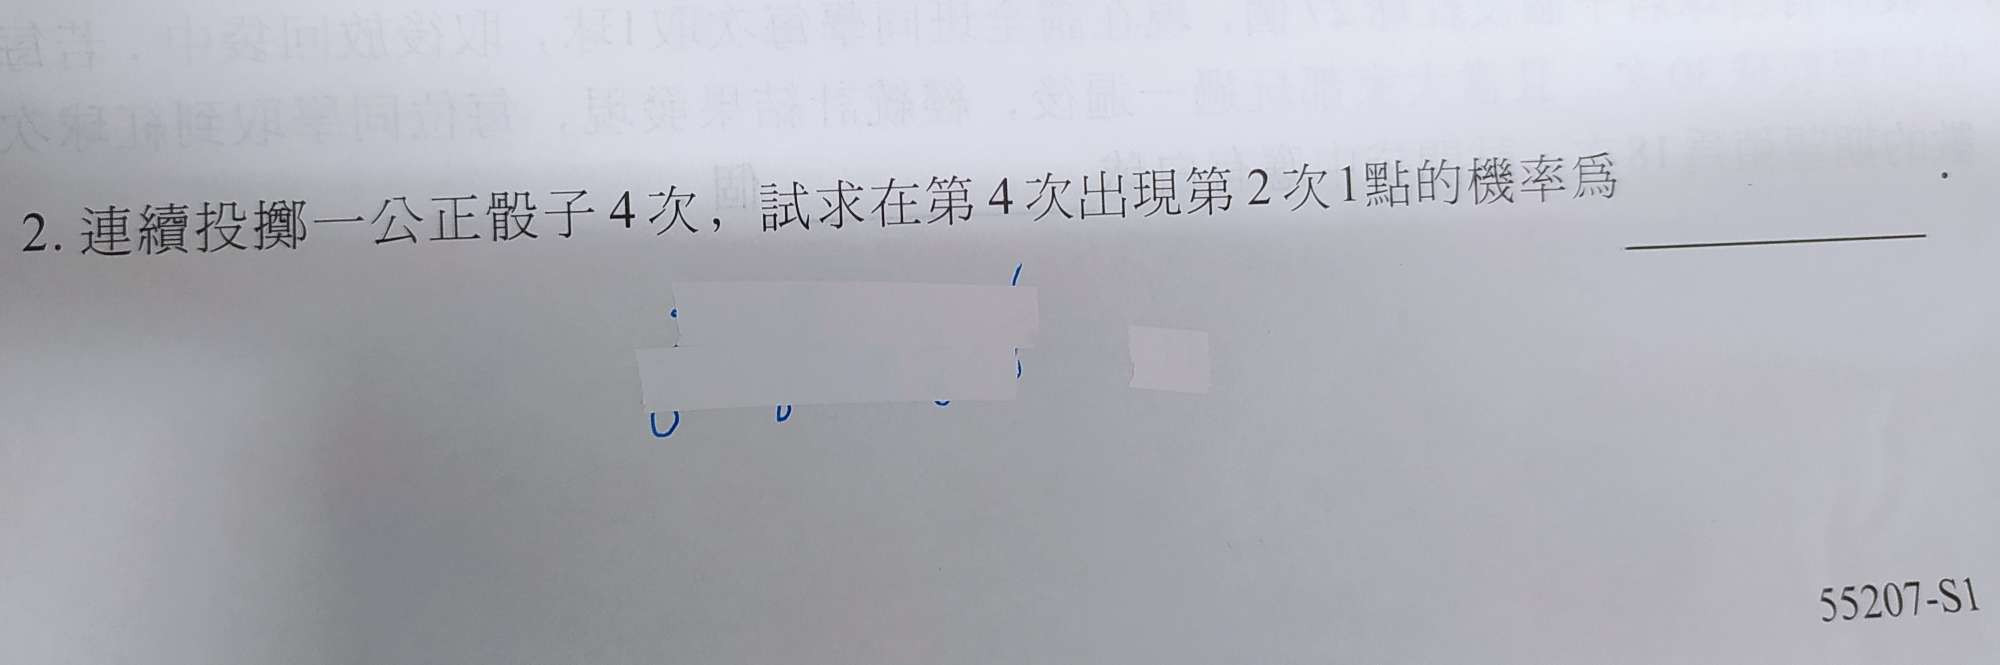 2. 連續投擲一公正骰子4次，試求在第4次出現第2次1點的機率爲________.
55207-S1